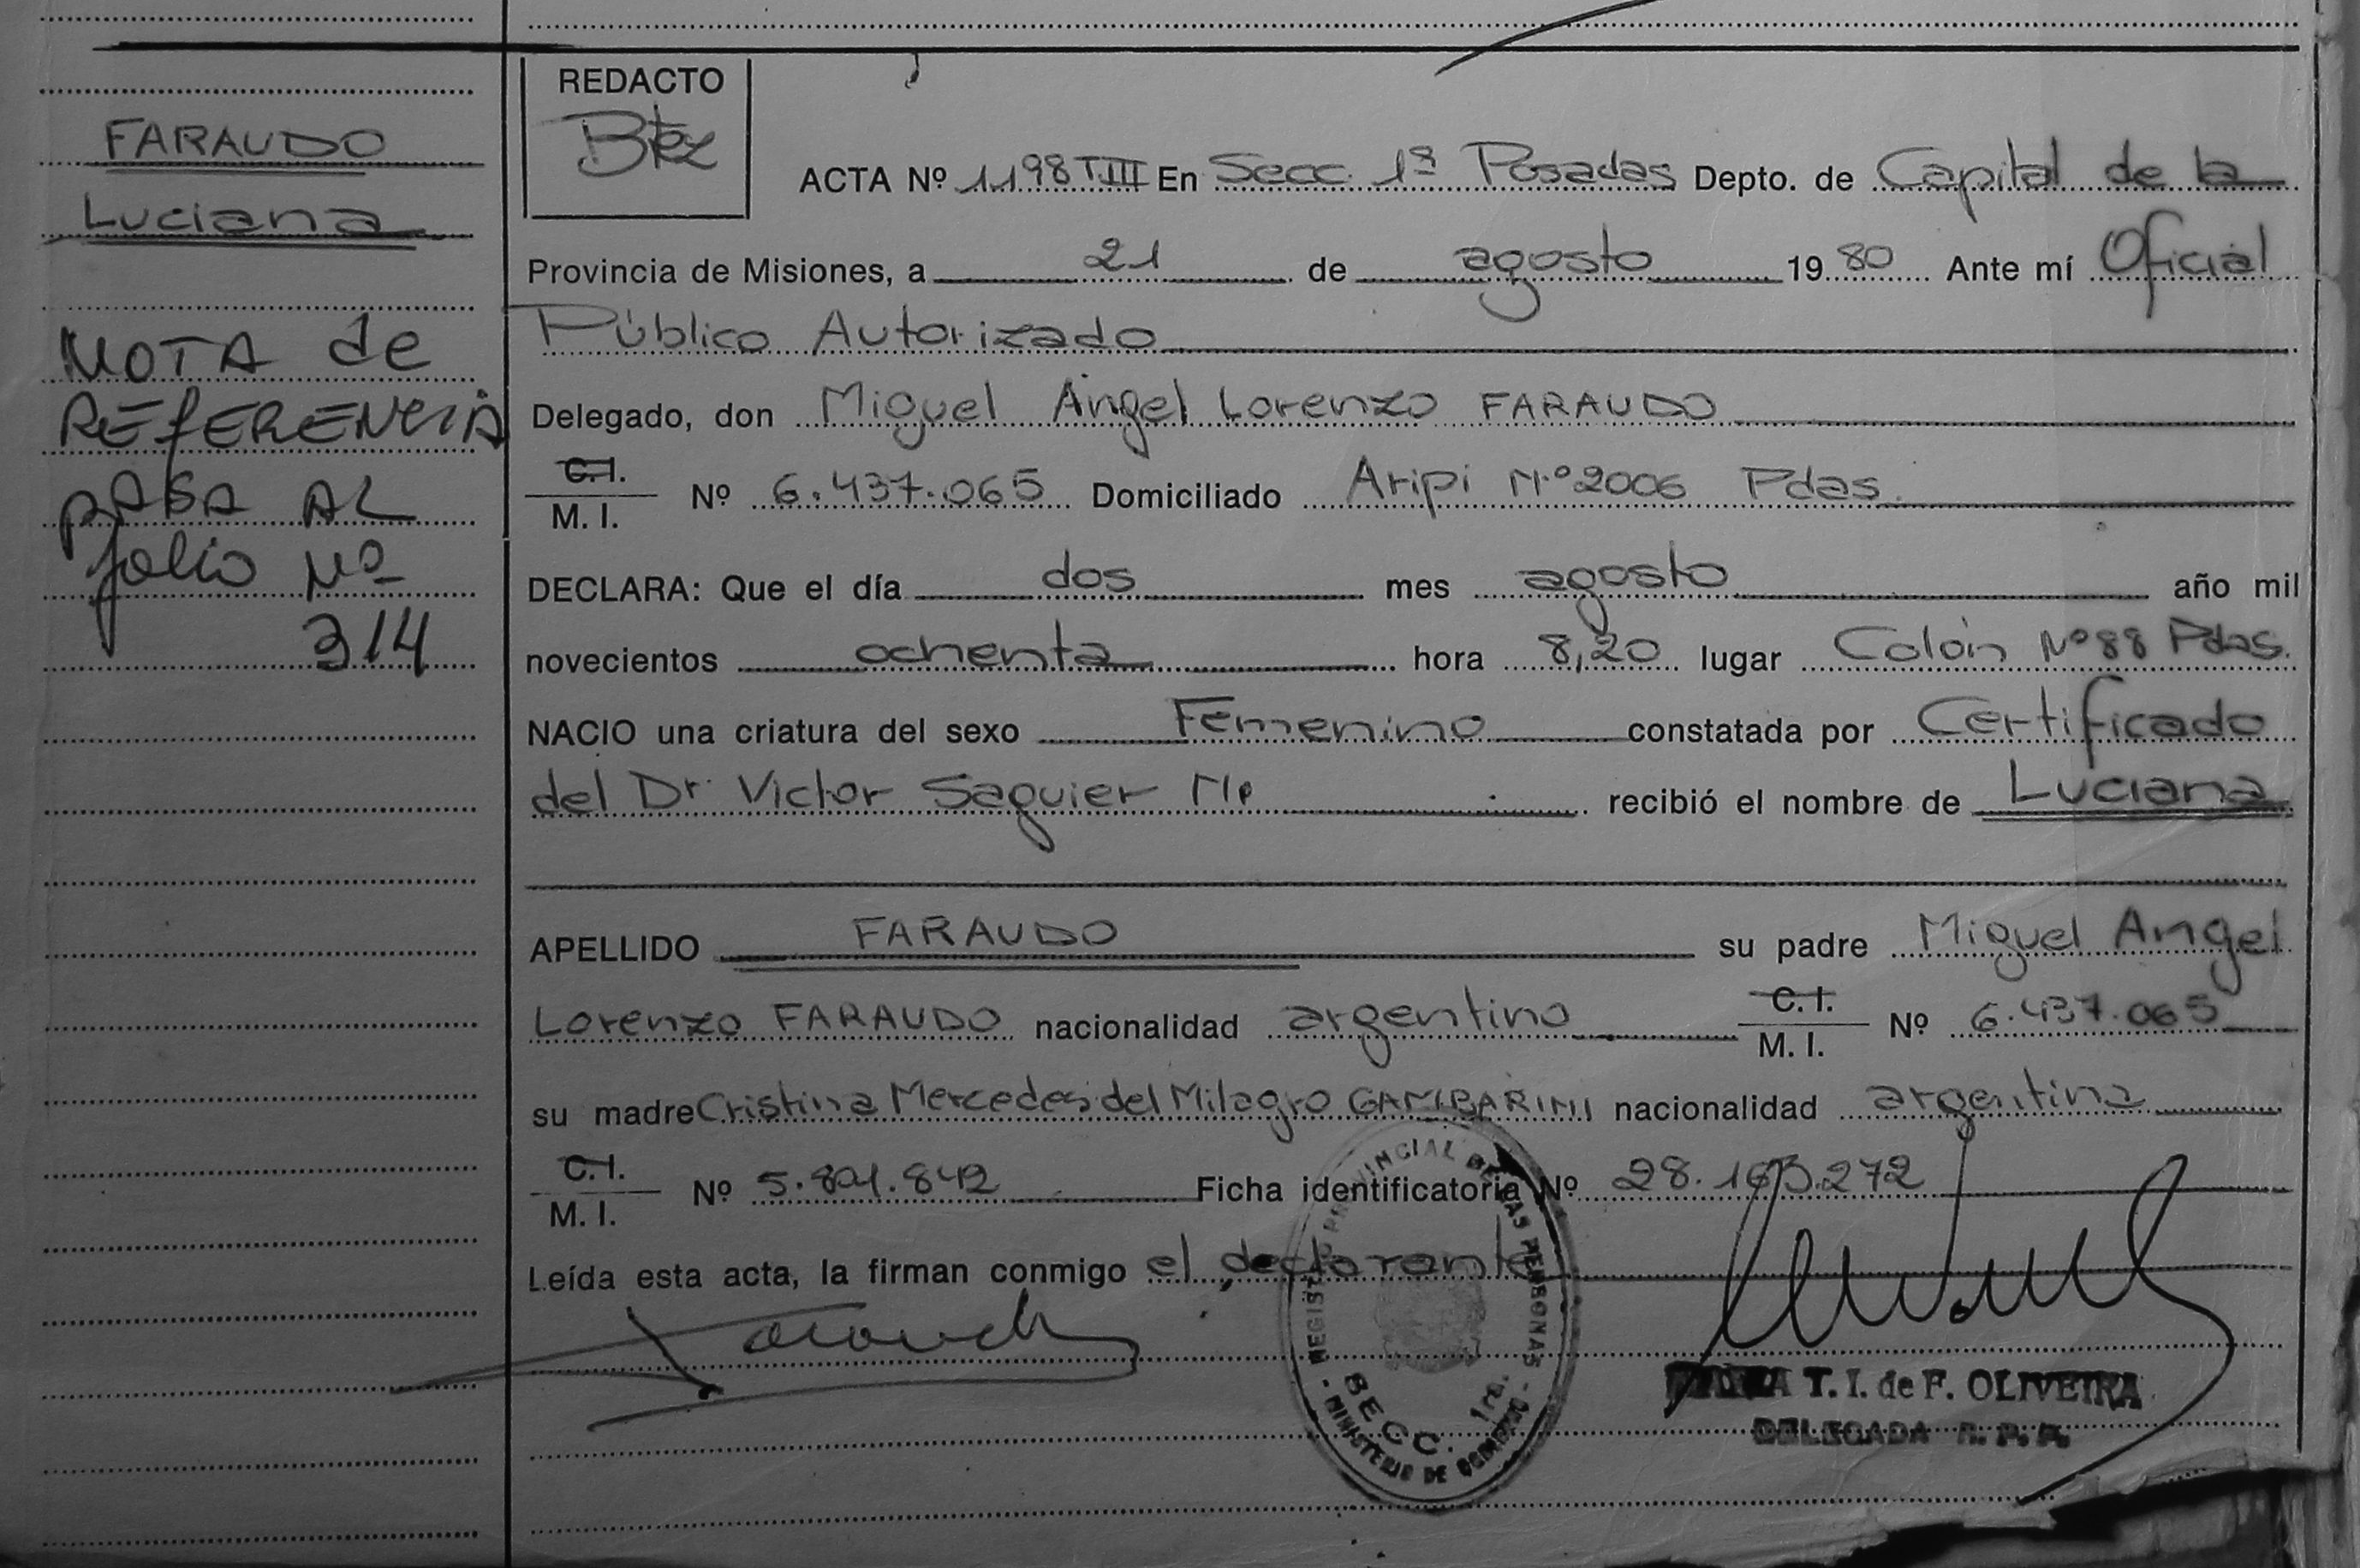 FARAUDO
Luciana
NOTA de
REfERENCIA
PASA AL
folio Nº
314
REDACTO
Btez
ACTA Nº 1198 T.III En Secc. 1ª Posadas Depto. de Capital de la
Provincia de Misiones, a 21 de agosto 1980 Ante mí Oficial
Público Autorizado
Delegado, don Miguel Angel Lorenzo FARAUDO
C.I.
M. I. Nº 6.437.065 Domiciliado Aripi Nº 2006 Pdas.
DECLARA: Que el día dos mes agosto año mil
novecientos ochenta hora 8,20 lugar Colón Nº 88 Pdas.
NACIO una criatura del sexo Femenino constatada por Certificado
del Dr. Victor Saguier recibió el nombre de Luciana
APELLIDO FARAUDO su padre Miguel Angel
Lorenzo FARAUDO nacionalidad argentino C. I.
M. I. Nº 6.437.065
su madre Cristina Mercedes del Milagro GAMBARINI nacionalidad argentina
C. I.
M. I. Nº Ficha identificatoria Nº
Leída esta acta, la firman conmigo el declarante
REGISTRO PROVINCIAL DE LAS PERSONAS
SECC. 1ra.
- MINISTERIO DE GOBIERNO -
T. I. de F. OLIVEIRA
DELEGADA R. P. P.